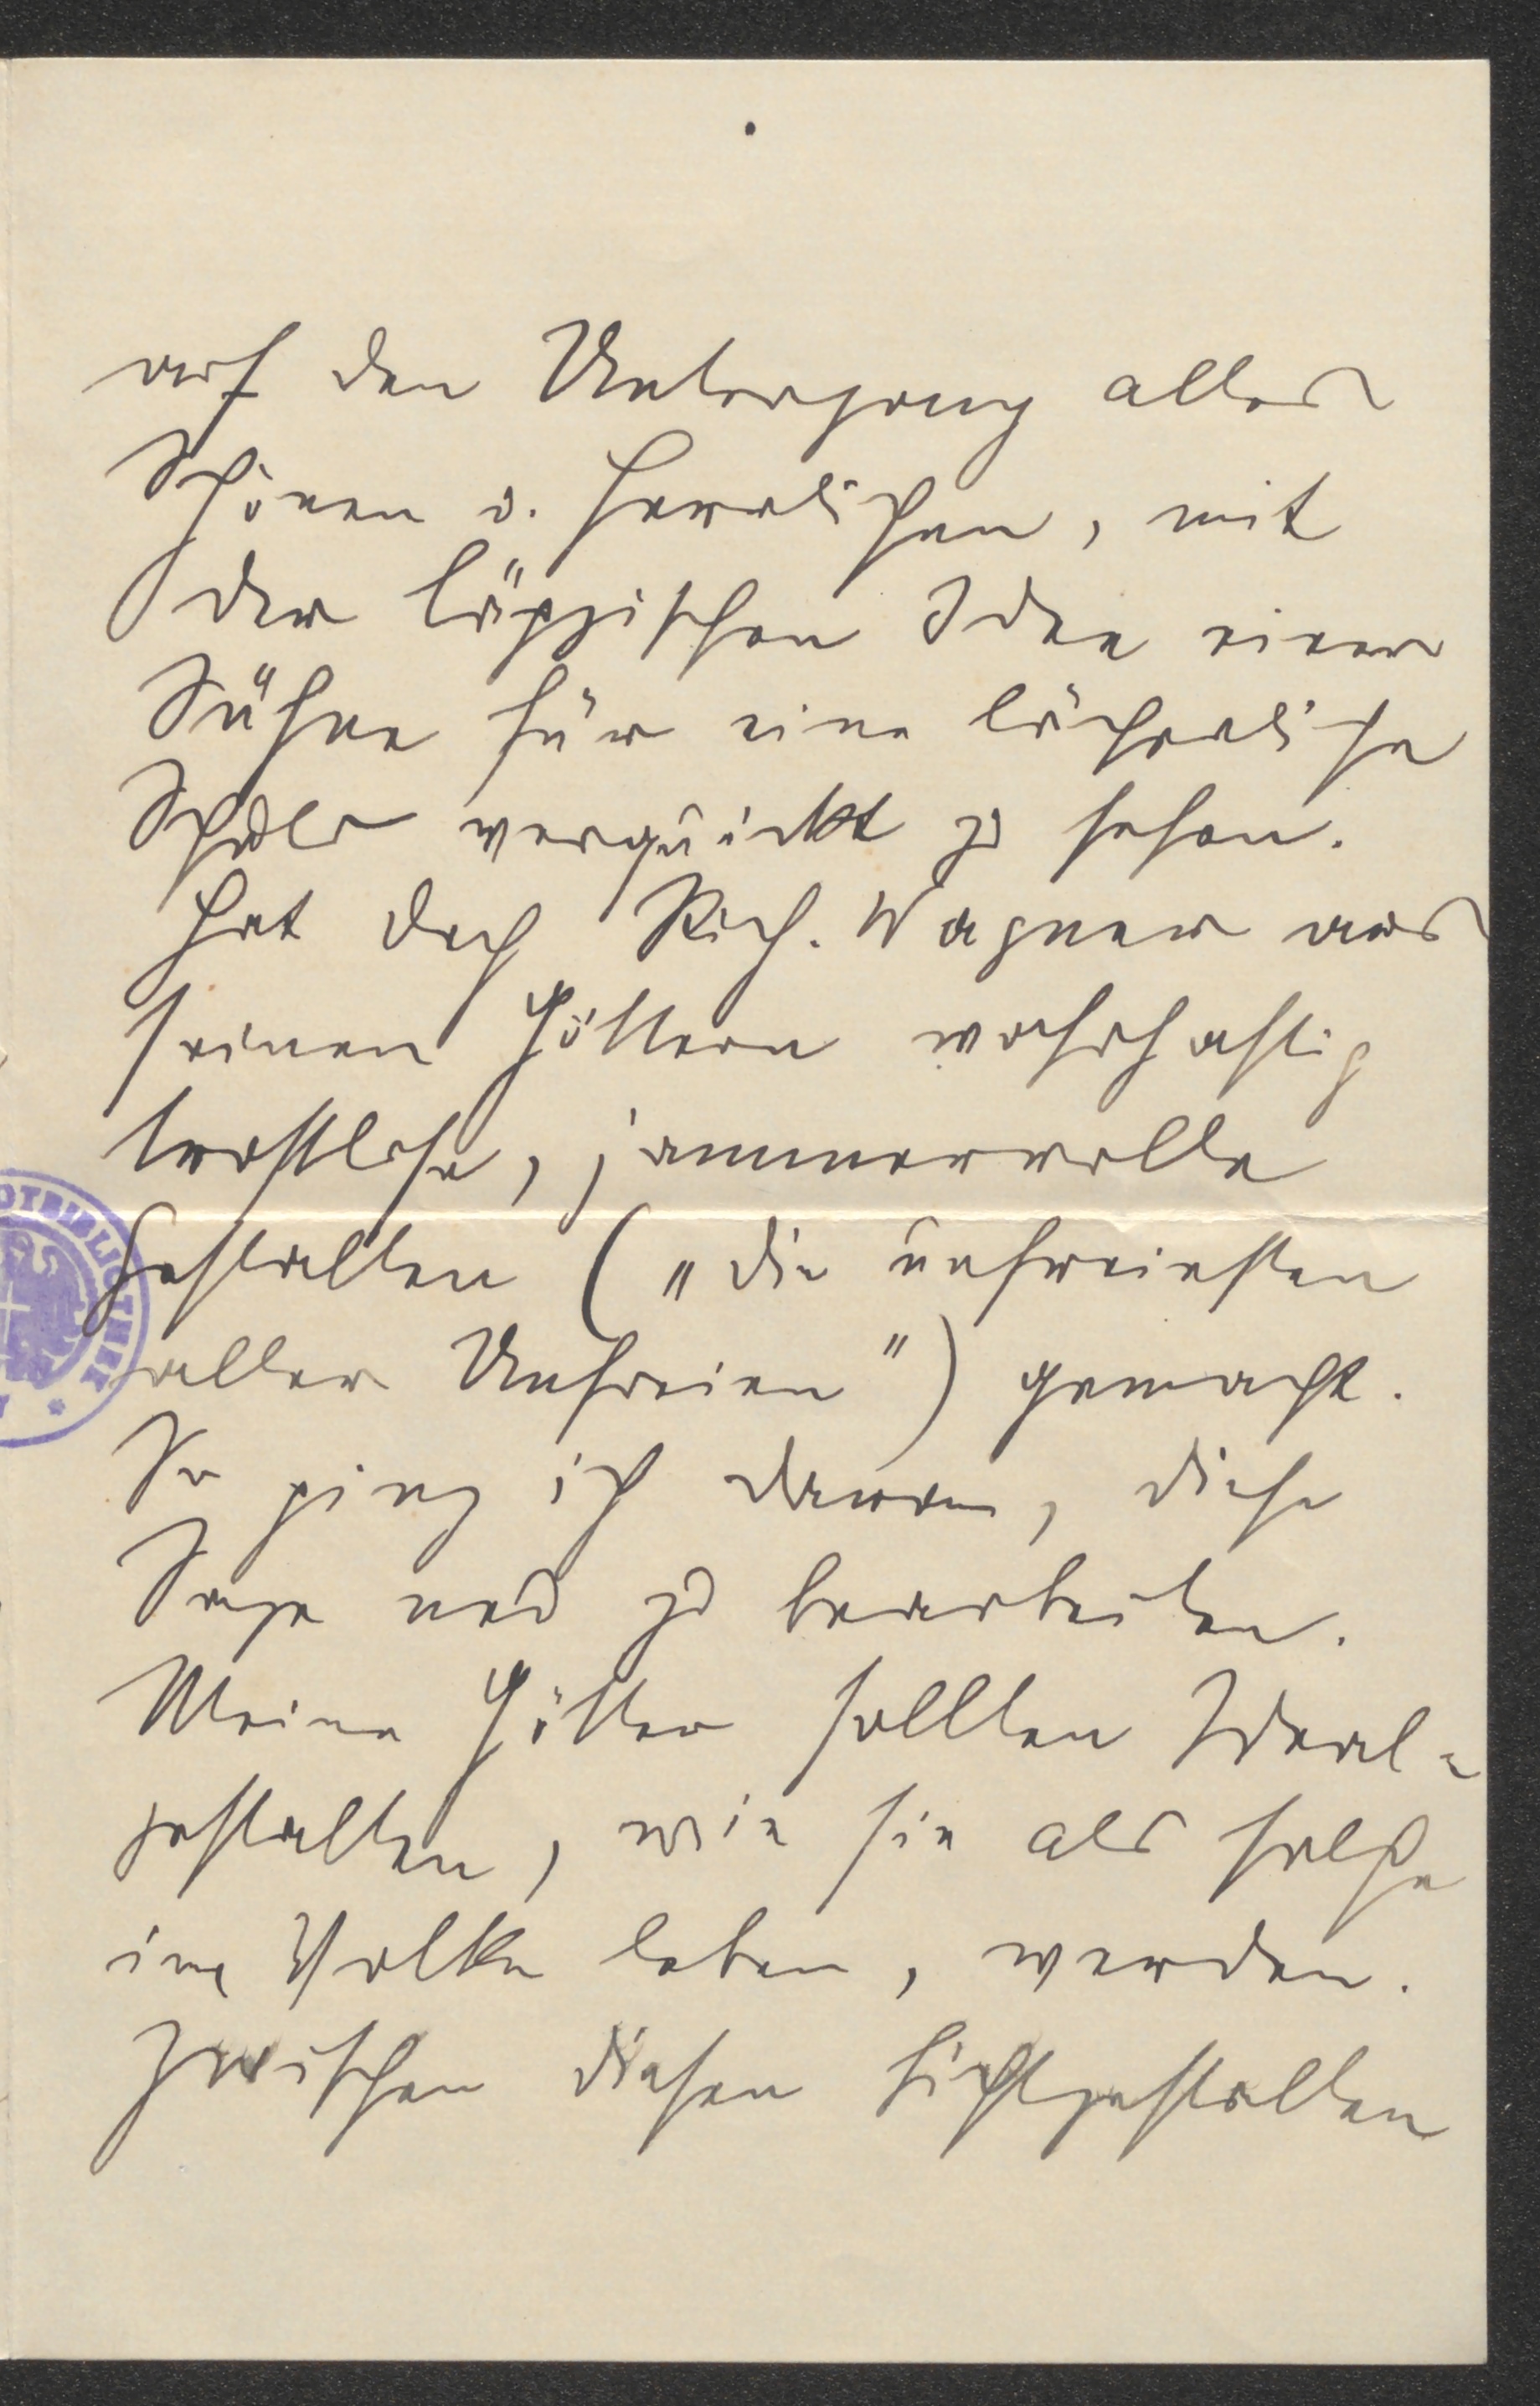 auf den Untergang alles
Schönen u. Herrlichen, mit
der läppischen Idee einer
Sühne für eine lächerliche
Schuld verquickt zu sehen.
Hat doch Rich. Wagner aus
seinen Göttern wahrhaftig
trostlose, jammervolle
Gestalten („die unfreiesten
aller Unfreien") gemacht.
So ging ich daran, diese
Sage neu zu bearbeiten.
Meine Götter sollten Ideal-
gestalten, wie sie als solche
im Volke leben, werden.
Zwischen diesen Lichtgestalten
OTBIBLIOTHEK